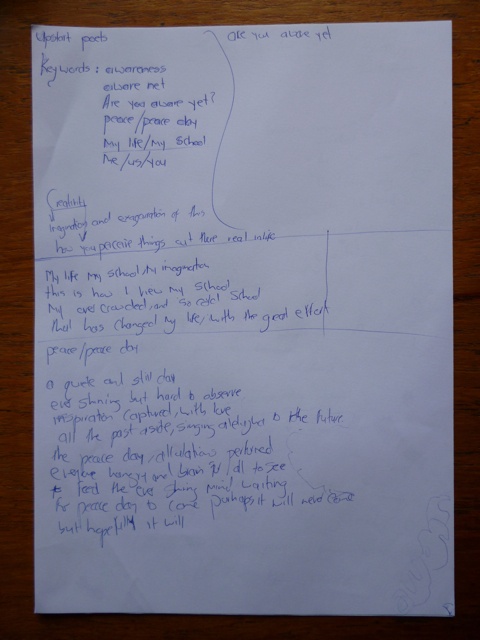 Upstart poets
Keywords: awareness
aware net
Are you aware yet?
peace/peace day
My life/My School
Me/us/you
are you aware yet
Creativity
imagination and exageration of this
how you perceive things out there real in life
My life my school, My imagination
this is how I view my school
My over crowded, and so cald School
that has changed My life, with the great effort
peace/peace day
a quiete and still day
ever shining but hard to observe
inspiration captured, with love
all the past aside, singing to the future
the peace day, perfumed
everyone hungry and for all to see
feed the ever shining mind waiting
for peace day to come perhaps it will never come
but hopefully it will